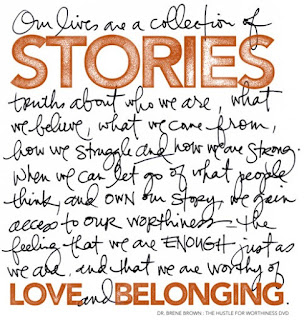 Our lives are a collection of
STORIES
truths about who we are, what
we believe, what we come from,
how we struggle and how we are strong.
When we can let go of what people
think, and OWN our story, we gain
access to our worthiness – the
feeling that we are ENOUGH just as
we are. and that we are worthy of
LOVE and BELONGING.
DR. BRENE BROWN : THE HUSTLE FOR WORTHINESS DVD